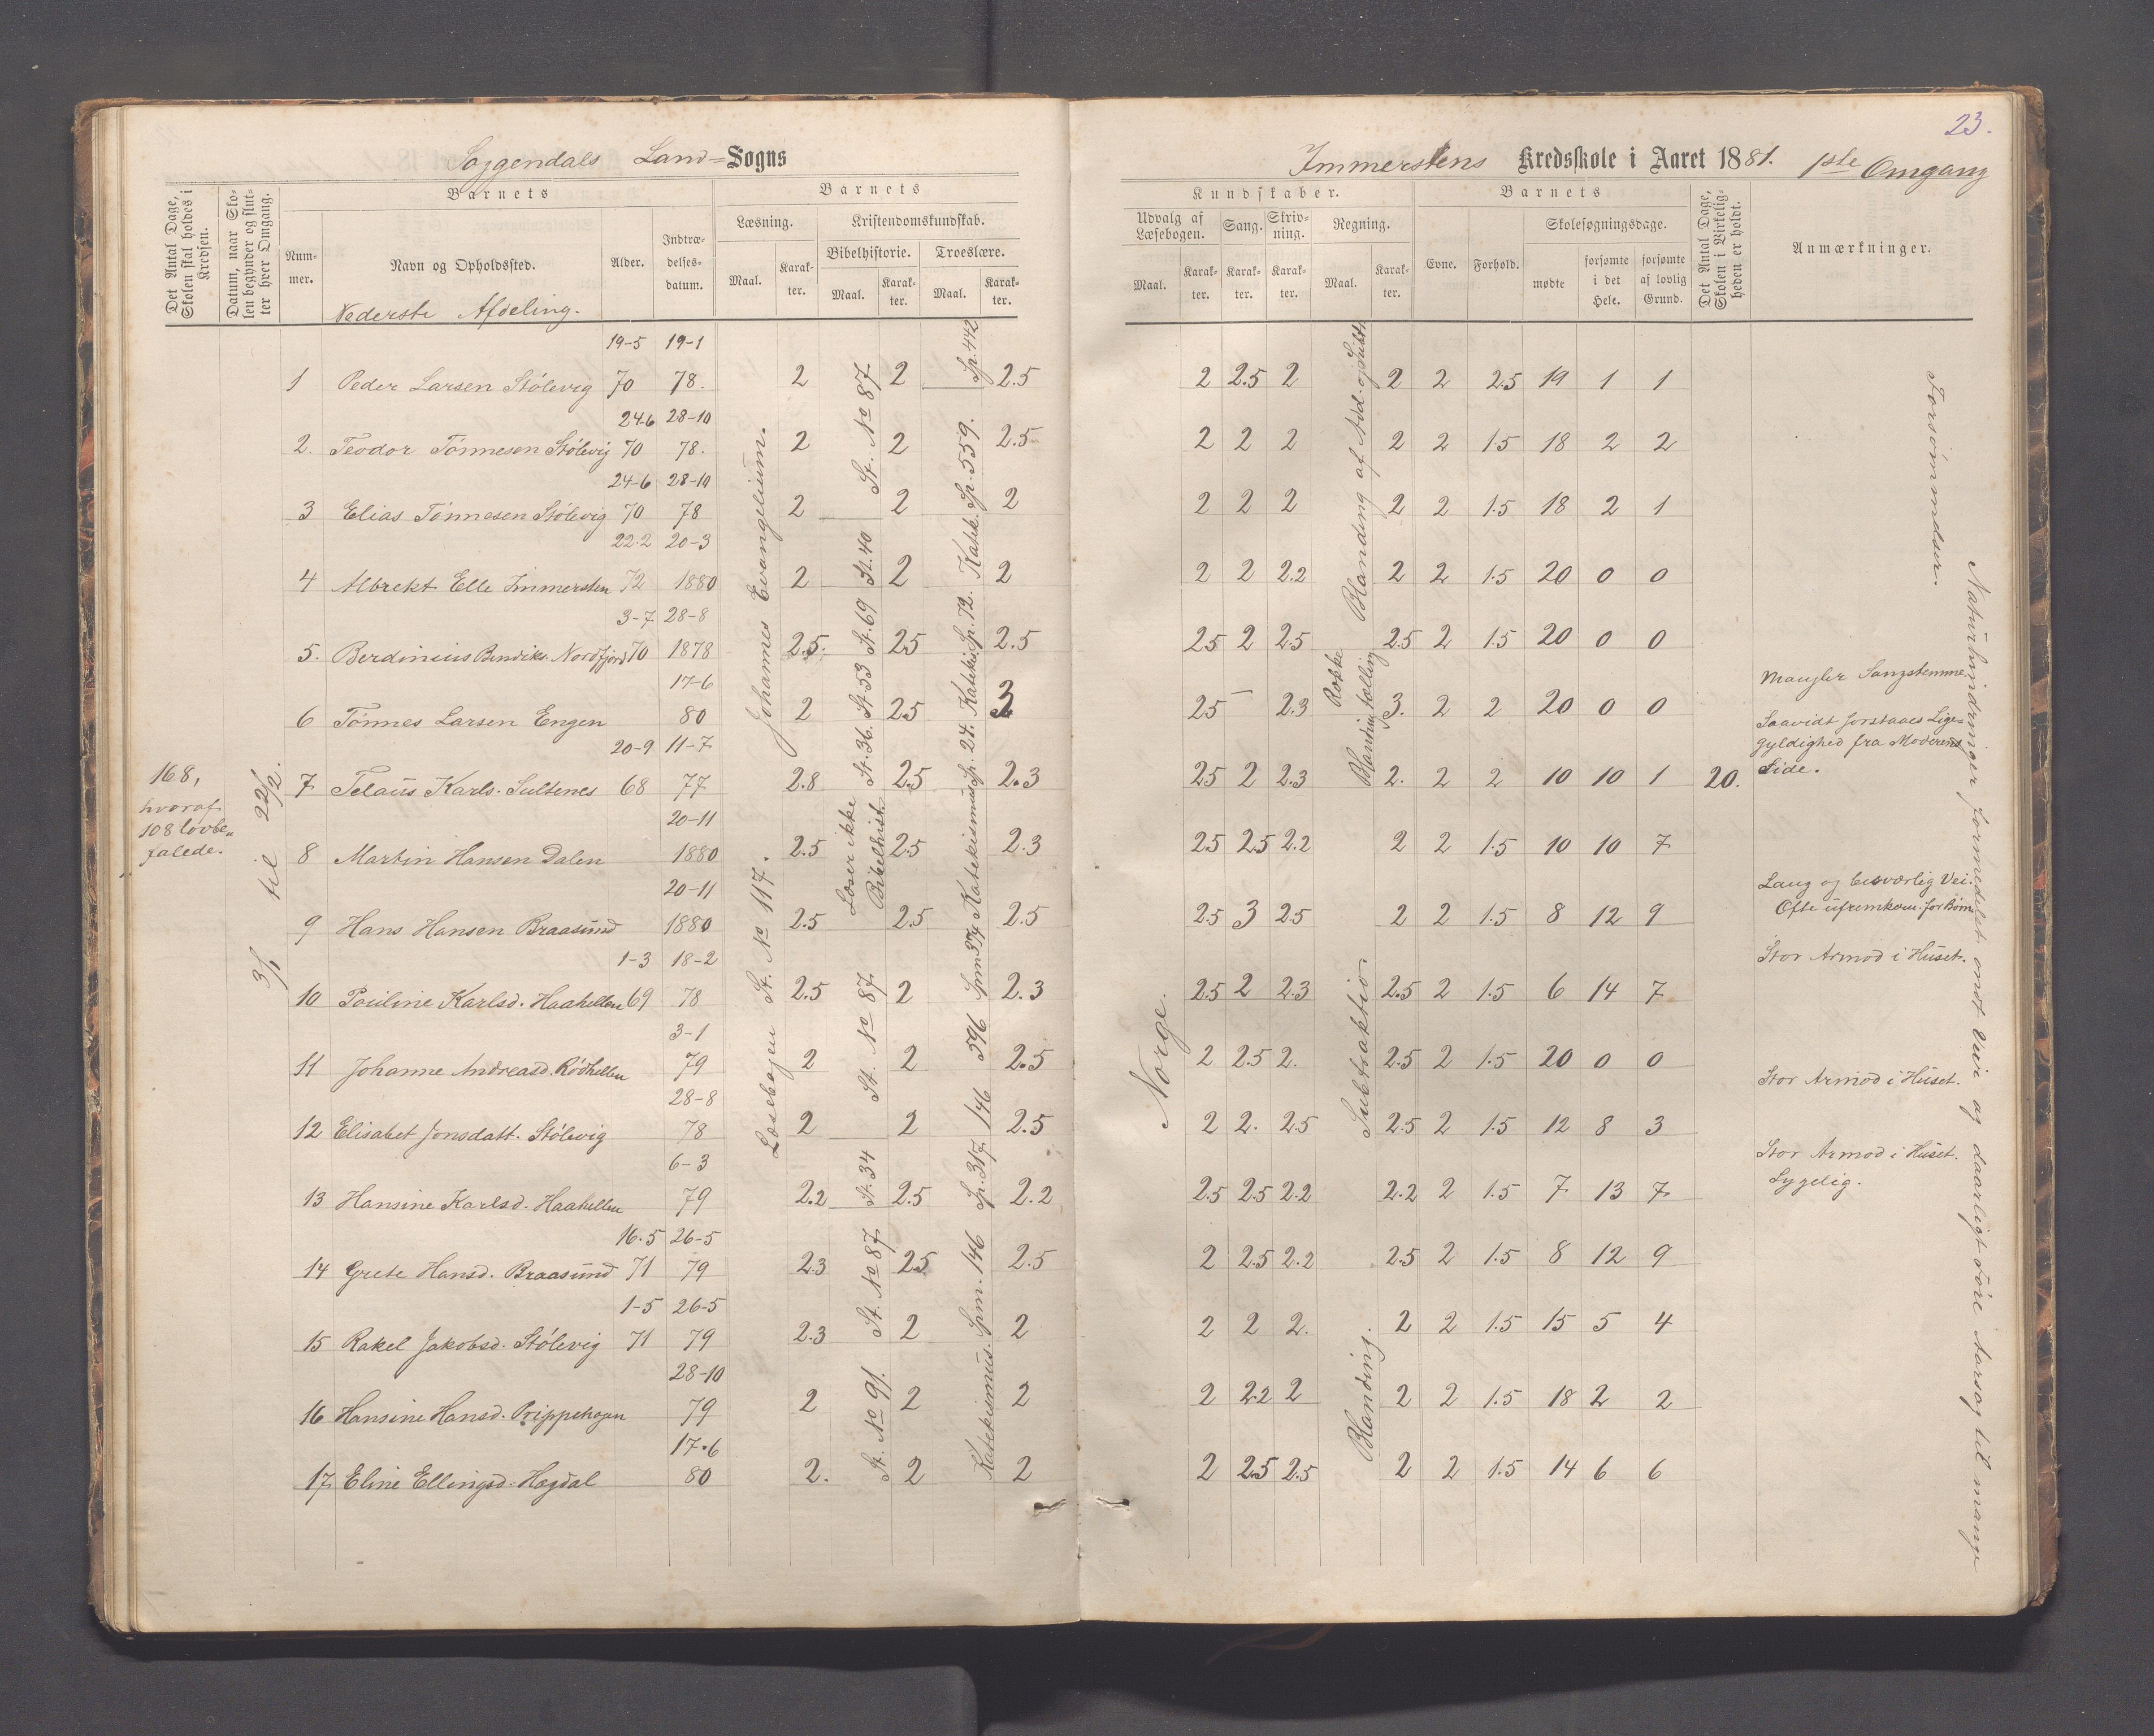 23.
Soggendals Land= Sogns
Immerstens Kredsskole i Aaret 1881. 1ste Omgang
Det Antal Dage, Skolen skal holdes i Kredsen.
Datum, naar Skolen begynder og slutter hver Omgang.
Barnets
Nummer.
Navn og Opholdssted.
Alder.
Indtrædelsesdatum.
Barnets
Læsning.
Kristendomskundskab.
Bibelhistorie.
Troeslære.
Maal.
Karakter.
Maal.
Karakter.
Maal.
Karakter.
Kundskaber.
Udvalg af Læsebogen.
Sang.
Skrivning.
Regning.
Maal.
Karakter.
Karakter.
Karakter.
Maal.
Karakter.
Barnets
Evne.
Forhold.
Skolesøgningsdage.
mødte
forsømte i det Hele.
forsømte af lovlig Grund.
Det Antal Dage, Skolen i Virkeligheden er holdt.
Anmærkninger.
Nederste Afdeling.
168,
hvoraf
108 lovbe„
falede.
3/1 til 22/2.
19-5 19-1
1 Peder Larsen Stølevig 70 78. 2 2 2.5 2 2.5 2 2 2 2.5 19 1 1
24-6 28-10
2. Teodor Tønnesen Stølevig 70 78. 2 2 2.5 2 2 2 2 2 1.5 18 2 2
24-6 28-10
3 Elias Tønnesen Stølevig 70 78 2 2 2 2 2 2 2 2 1.5 18 2 1
22.2 20-3
4 Albrekt Elle Immersten 72 1880 2 2 2 2 2 2.2 2 2 1.5 20 0 0
3-7 28-8
5. Berdinius Bendiks. Nordfjord 70 1878 2.5. 2.5 2.5 2.5 2 2.5 2.5 2 1.5 20 0 0
17-6
6 Tønnes Larsen Engen 80 2 2.5 3 2.5 — 2.3 3. 2 2 20 0 0
20-9 11-7
7 Telaus Karls. Sultenes 68 77 2.8 2.5 2.3 2.5 2 2.3 2. 2 2 10 10 1 20.
20-11
8 Martin Hansen Dalen 1880 2.5 2.5 2.3 2.5 2.5 2.2 2 2 1.5 10 10 7
20-11
9 Hans Hansen Braasund 1880 2.5 2.5 2.5 2.5 3 2.5 2 2 1.5 8 12 9
1-3 18-2
10 Pouline Karlsd. Haahellen 69 78 2.5 2 2.3 2.5 2 2.3 2.5 2 1.5 6 14 7
3-1
11 Johanne Andreasd. Rødhellen 79 2 2 2.5 2 2.5 2. 2.5 2 1.5 20 0 0
28-8
12 Elisabet Jonsdatt. Stølevig 78 2 2 2.5 2 2. 2.5 2.5 2 1.5 12 8 3
6-3
13 Hansine Karlsd. Haahellen 79 2.2 2.5 2.2 2.5 2.5 2.2 2.2 2 1.5 7 13 7
16.5 26-5
14 Grete Hansd. Braasund 71 79 2.3 2.5 2.5 2 2.5 2.2 2.5 2 1.5 8 12 9
1-5 26-5
15 Rakel Jakobsd. Stølevig 71 79 2.3 2 2 2 2 2. 2 2 1.5 15 5 4
28-10
16 Hansine Hansd. Prippehagen 79 2 2 2 2 2.2 2 2 2 1.5 18 2 2
17.6
17 Eline Ellingsd. Hogdal 80 2. 2 2 2 2.5 2.5 2 2 1.5 14 6 6
Læsebogen St. No 117.
Johannes Evangelium.
St. No 87
St. 40
St. 69
St. 53
St. 36.
Læser ikke
Bibelhist.
St. No 87
St. 34
St. No 87
St. No 91.
Sp. 442
Katek. Sp. 559.
Katekis. Sp. 72.
Katekismus Sp. 24.
Spm 374
596
146
Sp. 317.
Katekismus. Spm. 146
Norge.
Blanding af Add. og Subtr.
Blanding
Subtraktio.
Blanding.
Mangler Sangstemme.
Saavidt forstaaes Lige=
gyldighed fra Moderens
Side.
Lang og besværlig Vei.
Ofte ufremkom. for Børn
Stor Armod i Huset.
Stor Armod i Huset.
Stor Armod i Huset.
Sygelig.
Naturhindringer formedelst ondt Veir og daarligt Føre Aarsag til mange
Forsømmelser.